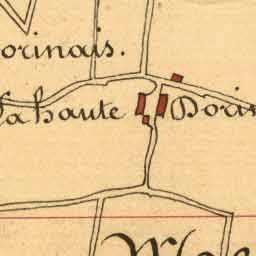 orinais.
la haute Dorin